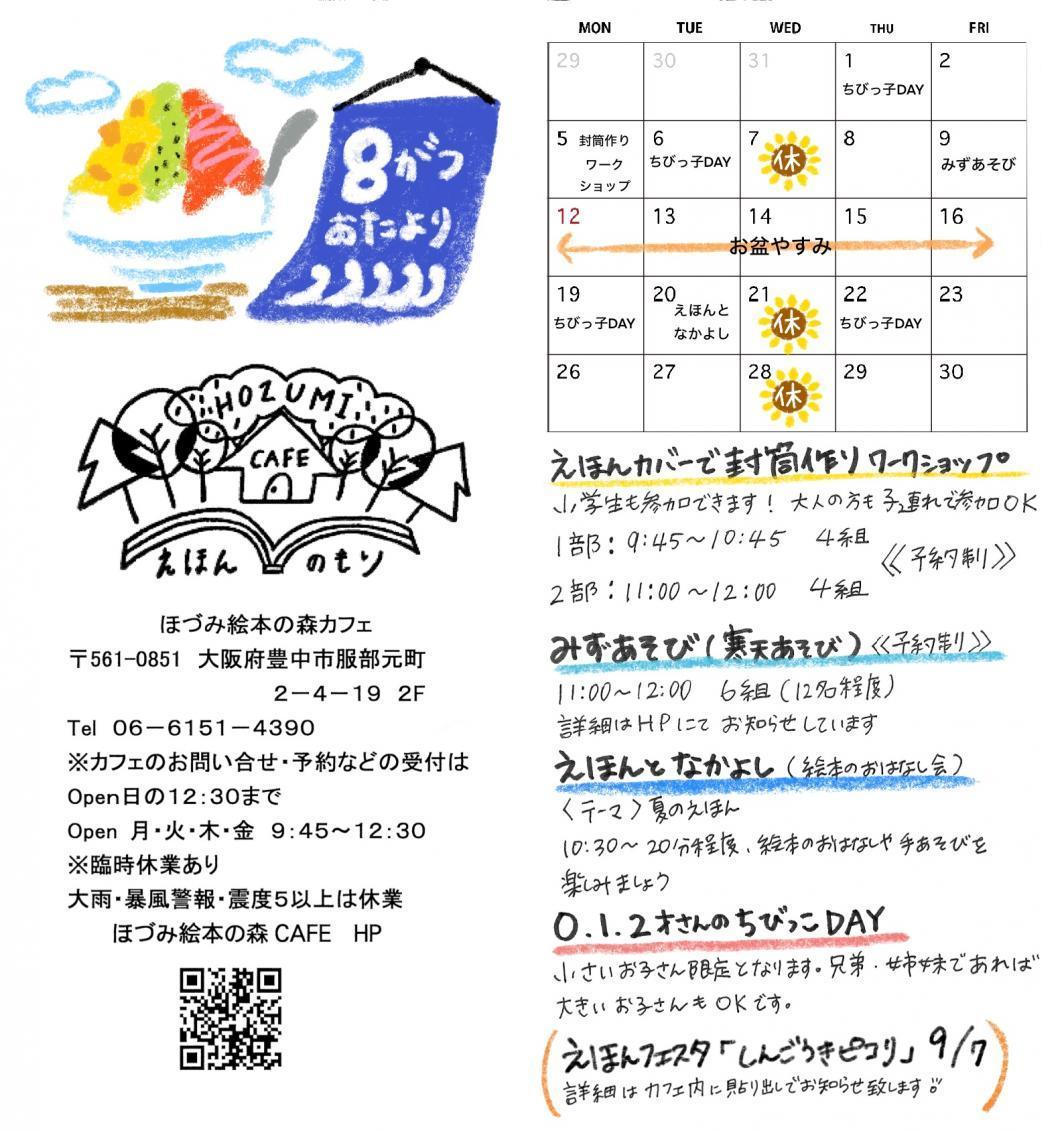 8がつ
おたより
HOZUMI
CAFE
えほん のもり
ほづみ絵本の森カフェ
〒561-0851 大阪府豊中市服部元町
2－4－19 2F
Tel 06－6151－4390
※カフェのお問い合せ・予約などの受付は
Open日の12:30まで
Open 月・火・木・金 9:45～12:30
※臨時休業あり
大雨・暴風警報・震度5以上は休業
ほづみ絵本の森 CAFE HP
MON TUE WED THU FRI
29 30 31 1 2
ちびっ子DAY
5 封筒作り 6 7 休 8 9
ワーク ちびっ子DAY みずあそび
ショップ
12 13 14 15 16
お盆やすみ
19 20 えほんと 21 休 22 23
ちびっ子DAY なかよし ちびっ子DAY
26 27 28 休 29 30
えほんカバーで封筒作りワークショップ
小学生も参加できます！ 大人の方も子連れで参加OK
1部：9:45～10:45 4組
《予約制》
2部：11:00～12:00 4組
みずあそび（寒天あそび）《予約制》
11:00～12:00 6組（12名程度）
詳細はHPにてお知らせしています
えほんとなかよし（絵本のおはなし会）
〈テーマ〉夏のえほん
10:30～20分程度、絵本のおはなしや手あそびを
楽しみましょう
0.1.2才さんのちびっこDAY
小さいお子さん限定となります。兄弟・姉妹であれば
大きいお子さんもOKです。
えほんフェスタ「しんごうきピコリ」9/7
詳細はカフェ内に貼り出しでお知らせ致します